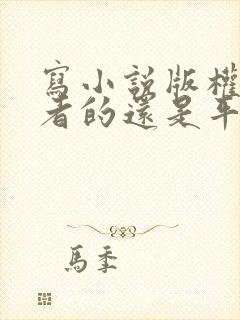 寫小說版權
者的還是平
馬季